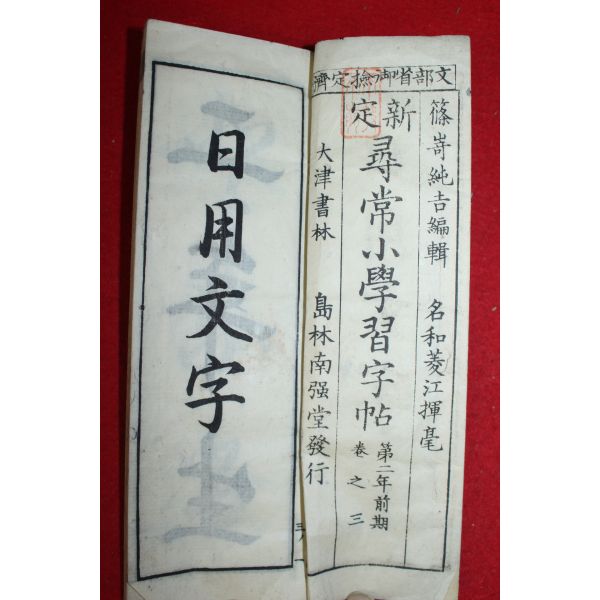 文部省御撿定濟
篠嵜純吉編輯 名和菱江揮毫
新定 尋常小學習字帖 第二年前期 卷之三
大津書林 島林南强堂發行
日用文字